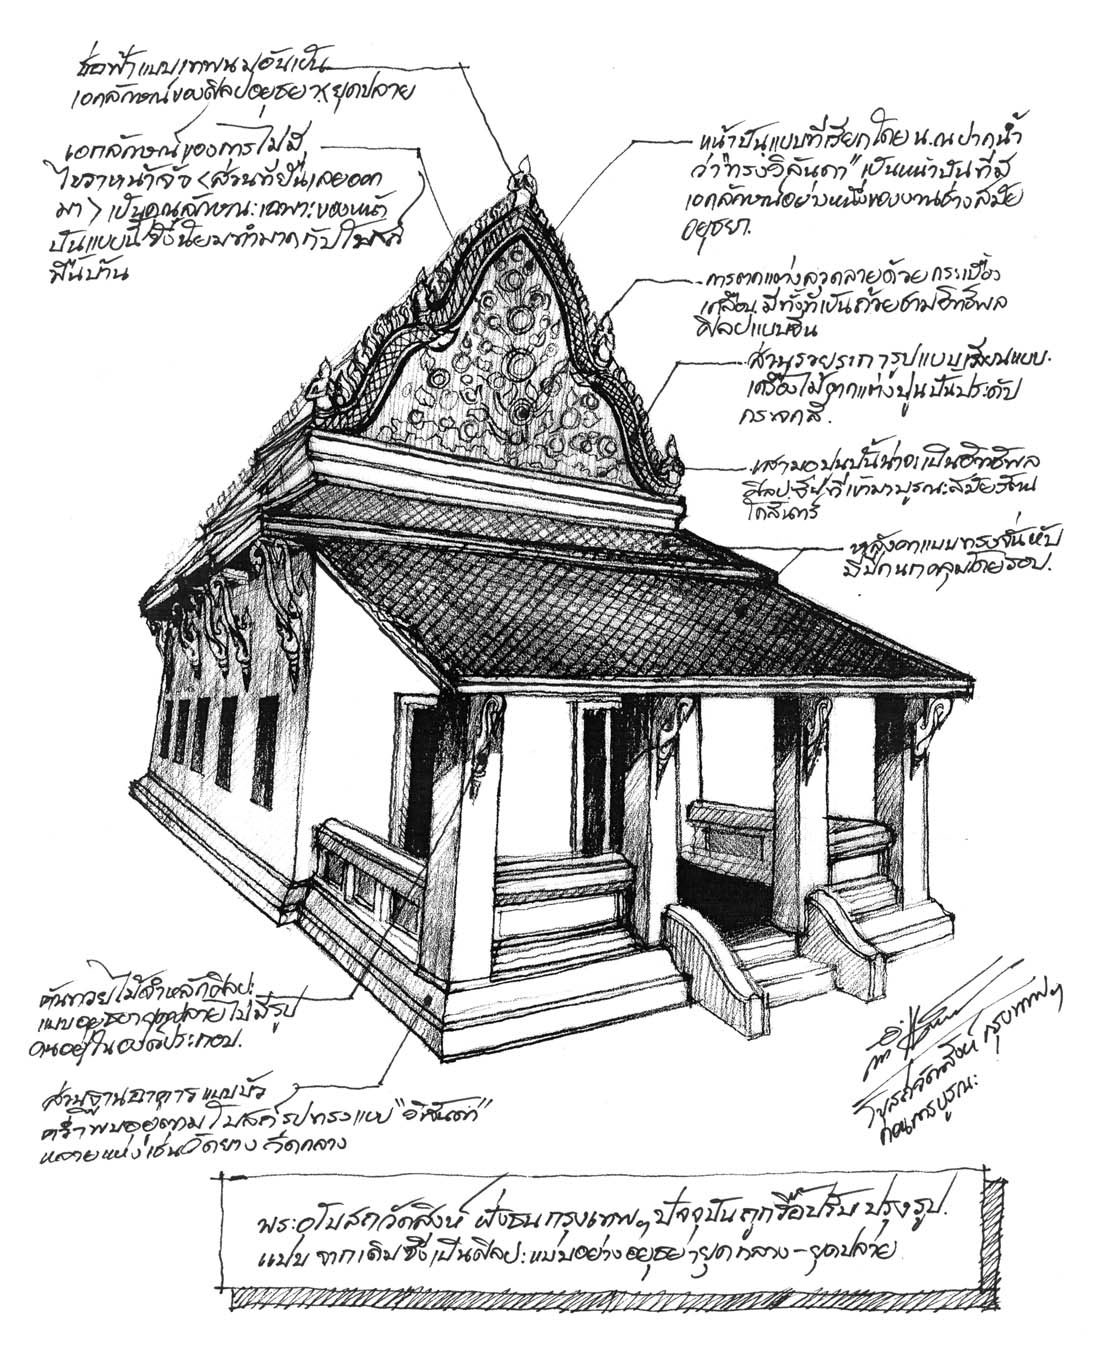 ช่อฟ้าแบบเทพนม อันเป็น
เอกลักษณ์ของศิลปอยุธยา ยุคปลาย
เอกลักษณ์ของการไม่มี
ไขราหน้าจั่ว (ส่วนที่ยื่นเลยออก
มา) เป็นคุณลักษณะเฉพาะของหน้า
บันแบบนี้ ซึ่งนิยมทำมากกับโบสถ์
พื้นบ้าน
หน้าบันแบบที่เรียกโดย น. ณ ปากน้ำ
ว่า "ทรงวิลันดา" เป็นหน้าบันที่มี
เอกลักษณ์อย่างหนึ่งของงานช่างสมัย
อยุธยา.
การตกแต่งลวดลายด้วยกระเบื้อง
เคลือบ มีทั้งที่เป็นถ้วยชามอิทธิพล
ศิลปแบบจีน
ส่วนรวยระกา รูปแบบเลียนแบบ
เครื่องไม้ ตกแต่งปูนปั้นประดับ
กระจกสี.
เสามอปูนปั้นน่าจะเป็นอิทธิพล
ศิลปะจีน ที่เข้ามาบูรณะสมัยรัตน
โกสินทร์
หลังคาแบบทรงจั่นหับ
มีปีกนกคลุมโดยรอบ.
คันทวยไม้จำหลักศิลปะ
แบบอยุธยายุคปลายไม่มีรูป
คนอยู่ในองค์ประกอบ.
ส่วนฐานอาคารแบบบัว
คว่ำพบอยู่ตามโบสถ์รูปทรงแบบ "วิลันดา"
หลายแห่ง เช่น วัดยาง วัดกลาง
โบสถ์วัดสิงห์ กรุงเทพฯ
ก่อนการบูรณะ
พระอุโบสถวัดสิงห์ ฝั่งธนกรุงเทพฯ ปัจจุบันถูกรื้อปรับปรุงรูป
แบบ จากเดิมซึ่งเป็นศิลปะแบบอย่างอยุธยายุคกลาง-ยุคปลาย